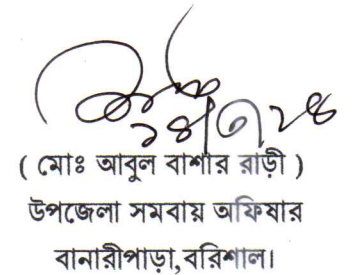 ( মোঃ আবুল বাশার রাড়ী )
উপজেলা সমবায় অফিষার
বানারীপাড়া,বরিশাল।